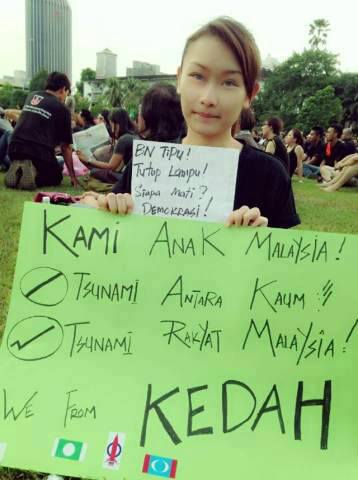 BN TIPU!
Tutup Lampu!
Siapa Mati?
DEMOKRASI!
KAMI ANAK MALAYSIA!
TSUNAMI ANTARA KAUM!!
TSUNAMI RAKYAT MALAYSIA!
WE FROM KEDAH